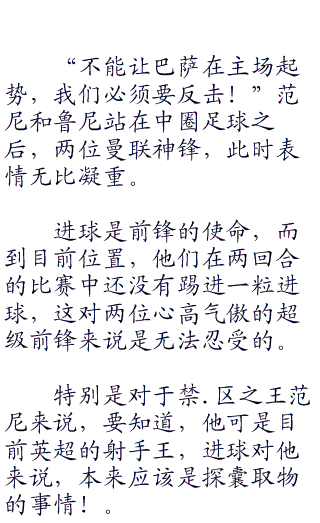 “不能让巴萨在主场起
势，我们必须要反击！”范
尼和鲁尼站在中圈足球之
后，两位曼联神锋，此时表
情无比凝重。
进球是前锋的使命，而
到目前位置，他们在两回合
的比赛中还没有踢进一粒进
球，这对两位心高气傲的超
级前锋来说是无法忍受的。
特别是对于禁.区之王范
尼来说，要知道，他可是目
前英超的射手王，进球对他
来说，本来应该是探囊取物
的事情！。